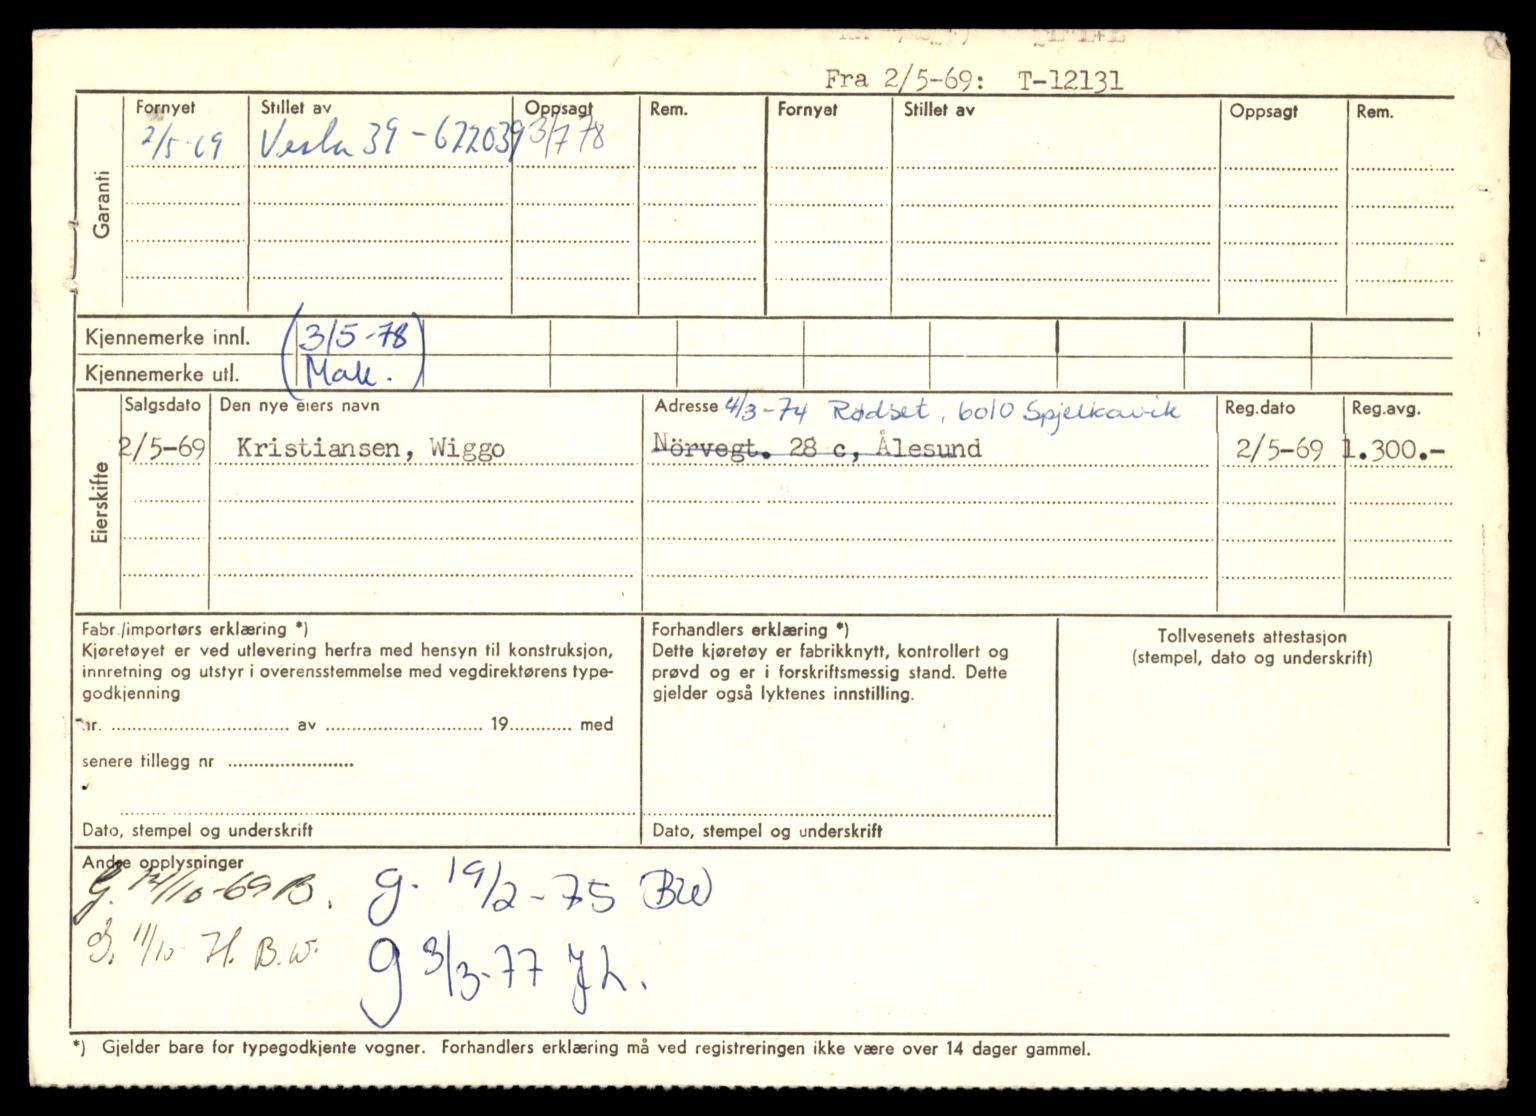 Fra 2/5-69: T-12131
Garanti
Fornyet Stillet av Oppsagt Rem. Fornyet Stillet av Oppsagt Rem.
2/5-69 Vesta 39-622039 3/7 78
Kjennemerke innl. (3/5-78
Kjennemerke utl. Mak.)
Eierskifte
Salgsdato Den nye eiers navn Adresse 4/3-74 Rødset, 6010 Spjelkavik Reg.dato Reg.avg.
2/5-69 Kristiansen, Wiggo Nörvegt. 28 c, Ålesund 2/5-69 1.300.-
Fabr./importørs erklæring *)
Kjøretøyet er ved utlevering herfra med hensyn til konstruksjon,
innretning og utstyr i overensstemmelse med vegdirektørens type-
godkjenning
nr. .......... av .......... 19.......... med
senere tillegg nr ..........
Dato, stempel og underskrift
Forhandlers erklæring *)
Dette kjøretøy er fabrikknytt, kontrollert og
prøvd og er i forskriftsmessig stand. Dette
gjelder også lyktenes innstilling.
Dato, stempel og underskrift
Tollvesenets attestasjon
(stempel, dato og underskrift)
Andre opplysninger
G. 12/10-69 B. g. 19/2-75 BW
g. 11/10 B.W. g 3/3-77
*) Gjelder bare for typegodkjente vogner. Forhandlers erklæring må ved registreringen ikke være over 14 dager gammel.